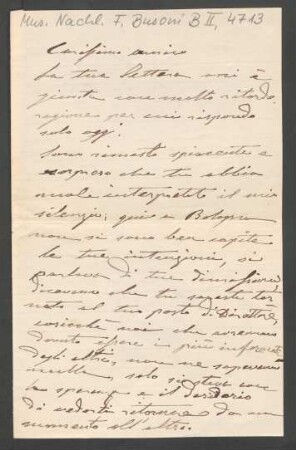 Mus. Nachl. F. Busoni B II, 4713
Carissimo amico
La tua lettera mi è
giunta con molto ritardo,
ragione per cui rispondo
solo oggi.
Sono rimasto spiacente e
sorpreso che tu abbia
male interpretato il mio
silenzio; qui a Bologna
non si sono ben capite
le tue intenzioni, si
parlava di tue dimissioni,
dicevano che tu saresti tor
nato al tuo posto di Direttore,
cosicché noi che avremmo
dovuto essere in più informati
degli altri, non ne sapevamo
nulla, solo si stava con
la speranza e il desiderio
di vederti ritornare da un
momento all'altro.